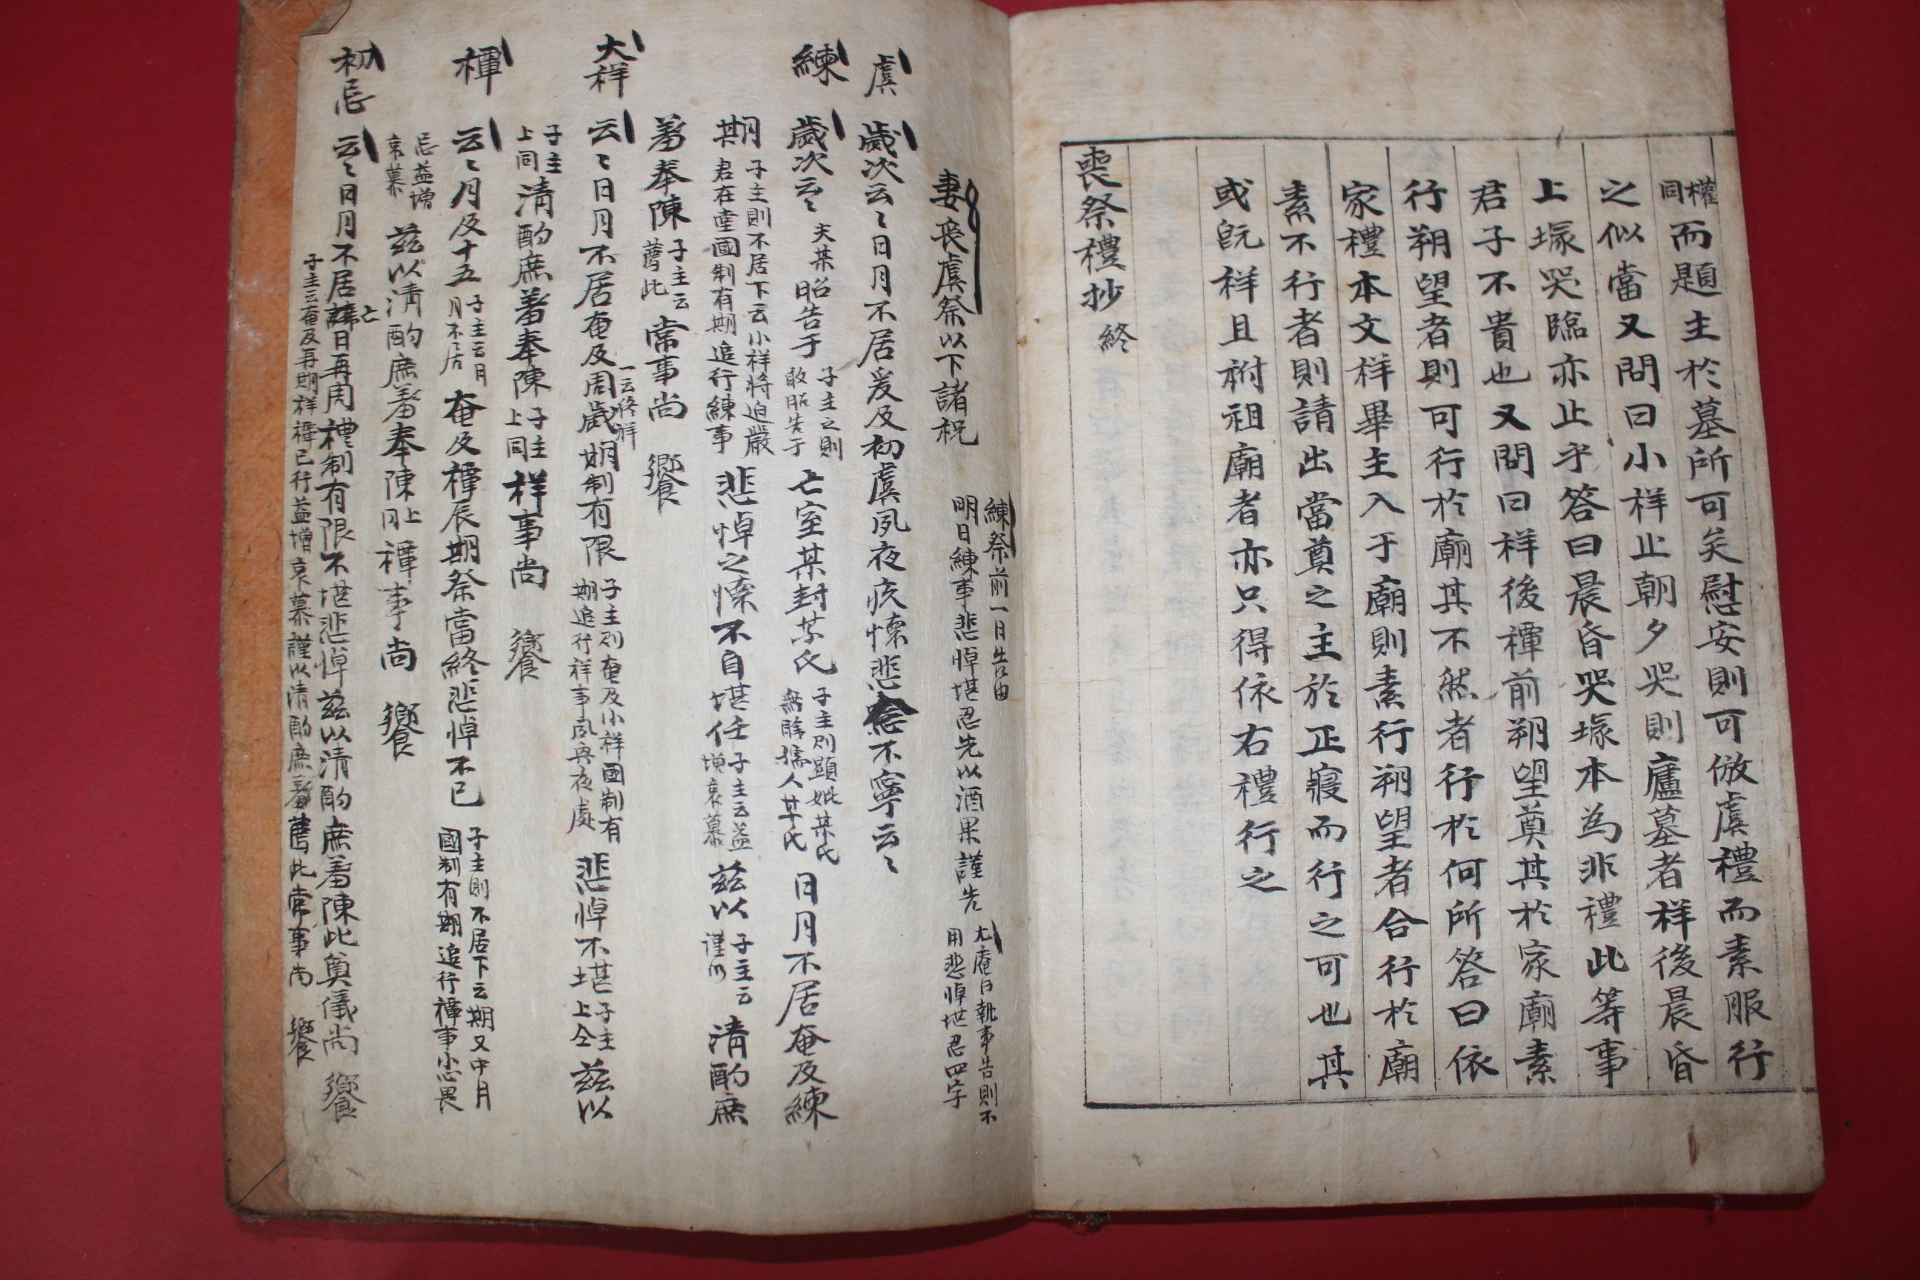 權同而題主於墓所可矣慰安則可倣虞禮而素服行
之似當又問曰小祥止朝夕哭則廬墓者祥後晨昏
上塚哭臨亦止乎答曰晨昏哭塚本為非禮此等事
君子不貴也又問曰祥後禫前朔望奠其於家廟素
行朔望者則可行於廟其不然者行於何所答曰依
家禮本文祥畢主入于廟則素行朔望者合行於廟
素不行者則請出當奠之主於正寢而行之可也其
或旣祥且祔祖廟者亦只得依右禮行之
喪祭禮抄 終
妻喪虞祭以下諸祝
練祭前一日告由
明日練事悲悼堪忍先以酒果謹先
尤庵曰執事告則不
用悲悼堪忍四字
虞
歲次云〻日月不居奄及初虞夙夜疚懷悲不寧云〻
練
歲次云〻夫某昭告于
子主之則
敢昭告于
亡室某封某氏
子主則顯妣某氏
無則孺人某氏
日月不居奄及練
期
子主則不居下云小祥將迫嚴
君在堂國制有期追行練事
悲悼之懷不自堪任
子主云益
增哀慕
茲以
子主云
謹以
清酌庶
羞奉陳
子主云
薦此
常事尚 饗
大祥
云〻日月不居奄及周歲期制有限
一云終祥
子主則奄及小祥國制有
期追行祥事夙興夜處
悲悼不堪
子主
上仝
茲以
子主
上同
清酌庶羞奉陳
子主
上同
祥事尚 饗
禫
云〻月及十五
子主云日
月不居
奄及禫辰期祭當終悲悼不已
子主則不居下云期又中月
國制有期追行禫事小心畏
忌益增
哀慕
茲以清酌庶羞奉陳
上
同
禫事尚 饗
初忌
云〻日月不居亡日再周禮制有限不堪悲悼茲以清酌庶羞陳此奠儀尚 饗
子主云奄及再期祥禫已行益增哀慕謹以清酌庶羞薦此常事尚 饗